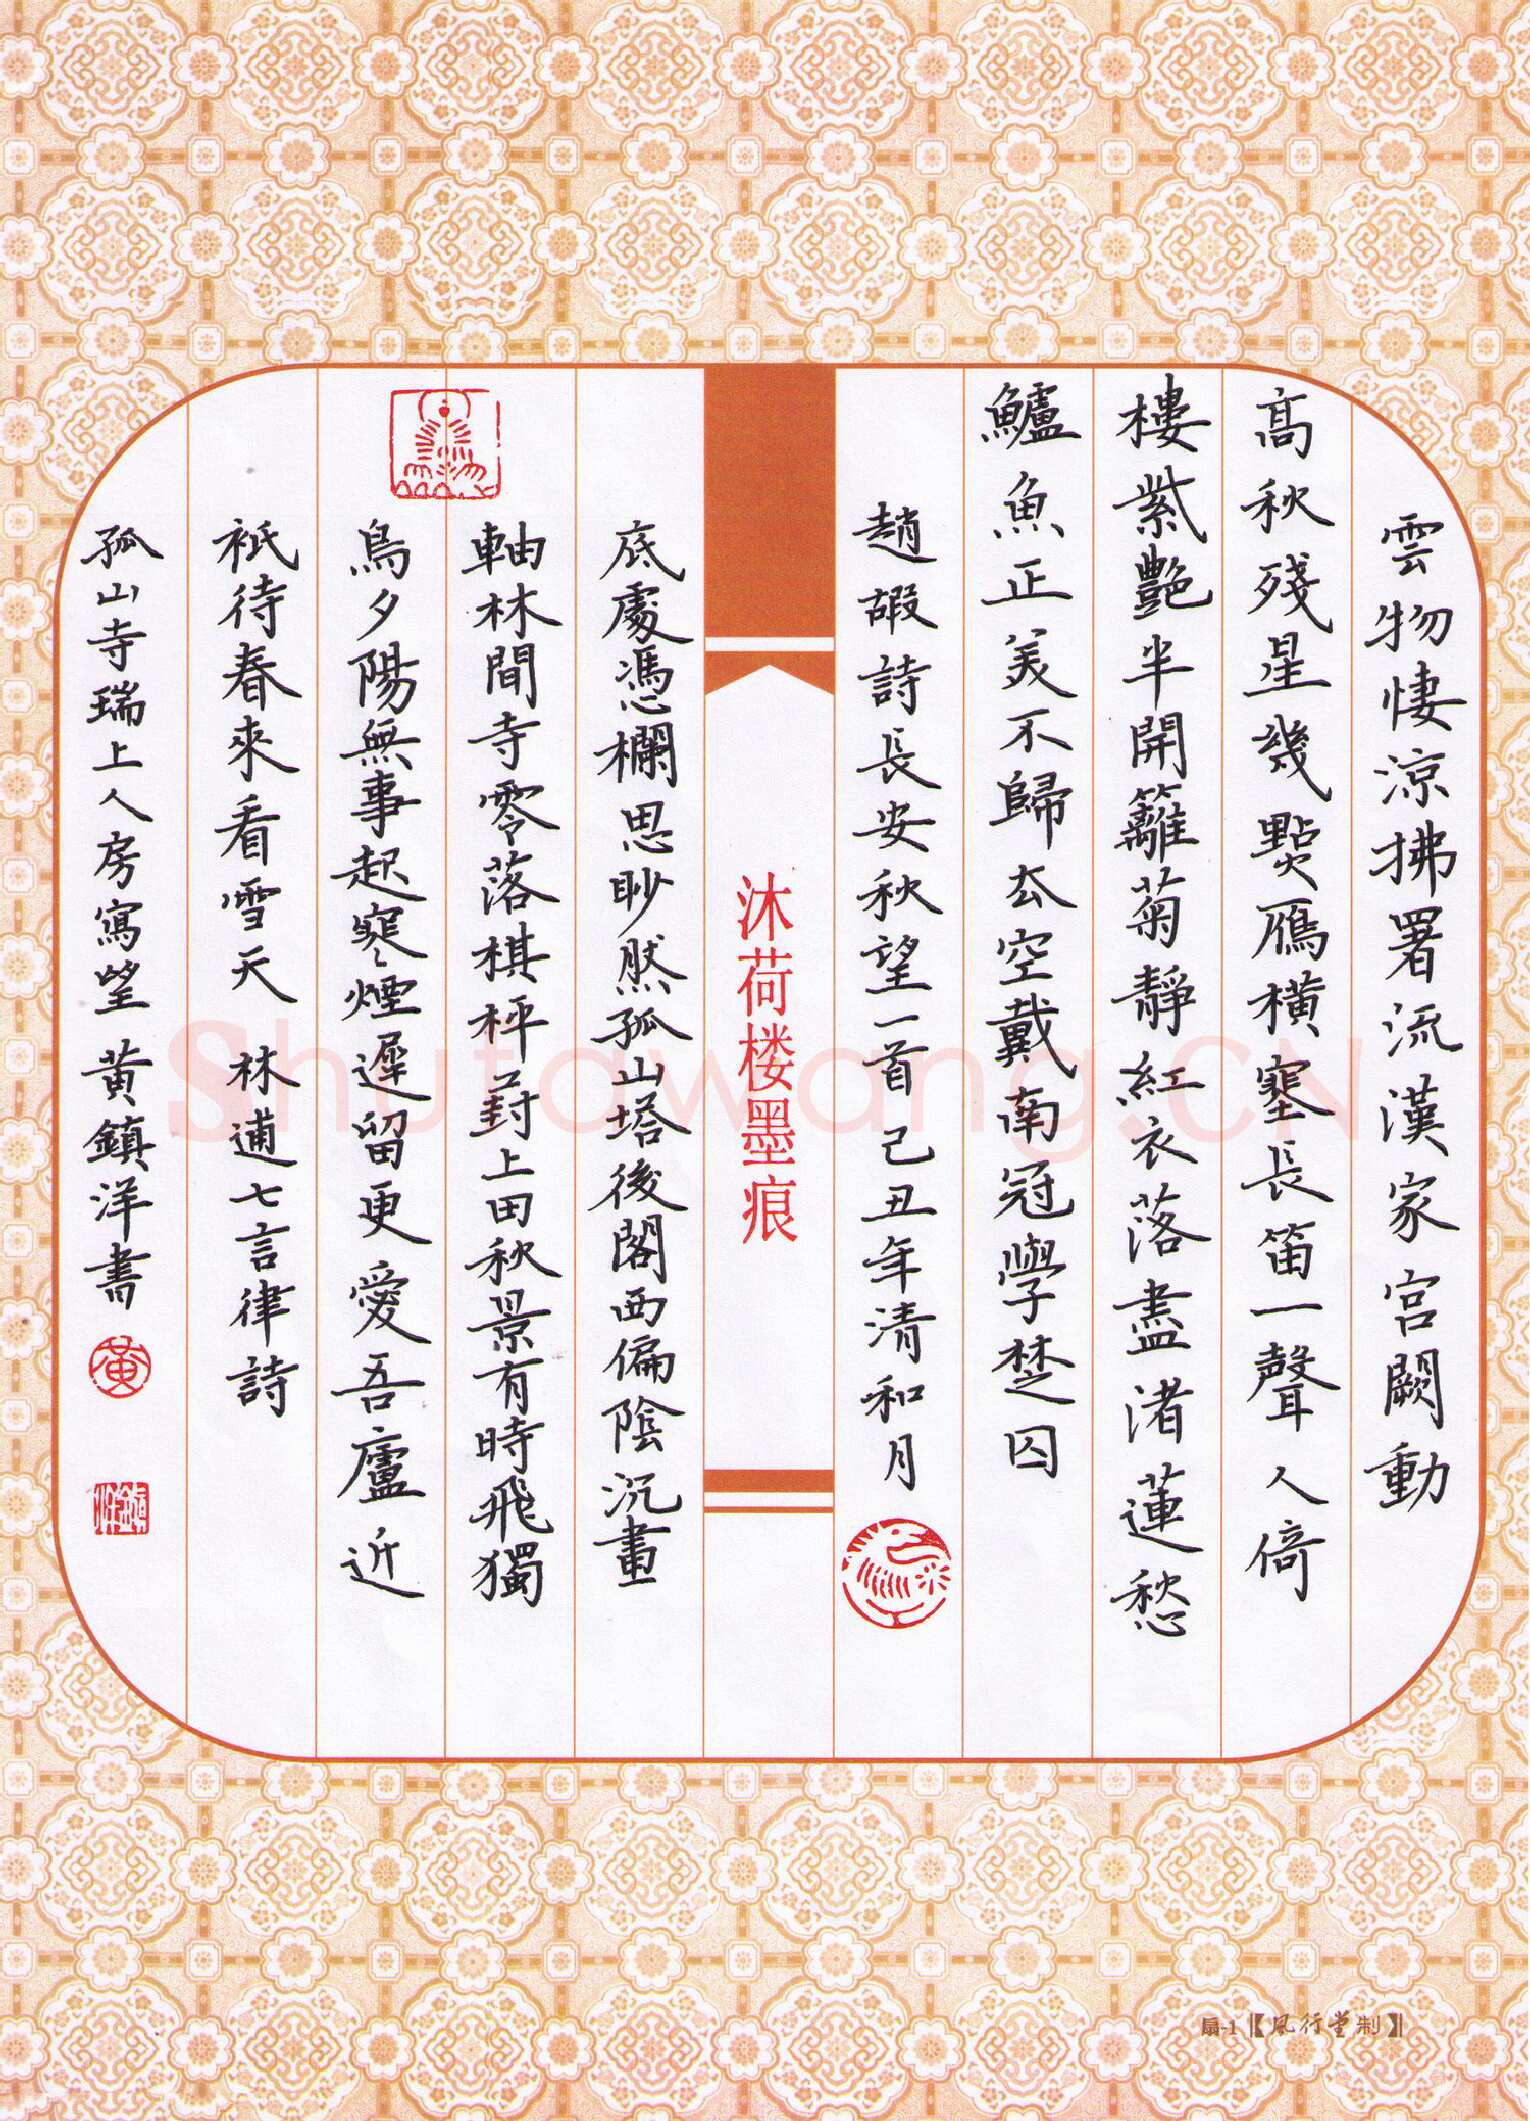 雲物悽涼拂署流漢家宮闕動
高秋殘星幾點雁橫塞長笛一聲人倚
樓紫艷半開籬菊靜紅衣落盡渚蓮愁
鱸魚正美不歸去空戴南冠學楚囚
趙嘏詩長安秋望一首己丑年清和月
沐荷楼墨痕
底處憑欄思眇然孤山塔後閣西偏陰沉畫
軸林間寺零落棋枰葑上田秋景有時飛獨
鳥夕陽無事起寒煙遲留更愛吾廬近
祇待春來看雪天 林逋七言律詩
孤山寺瑞上人房寫望 黃鎮洋書
黃
鎮洋
Shufawang.CN
扇-1【風行堂制】